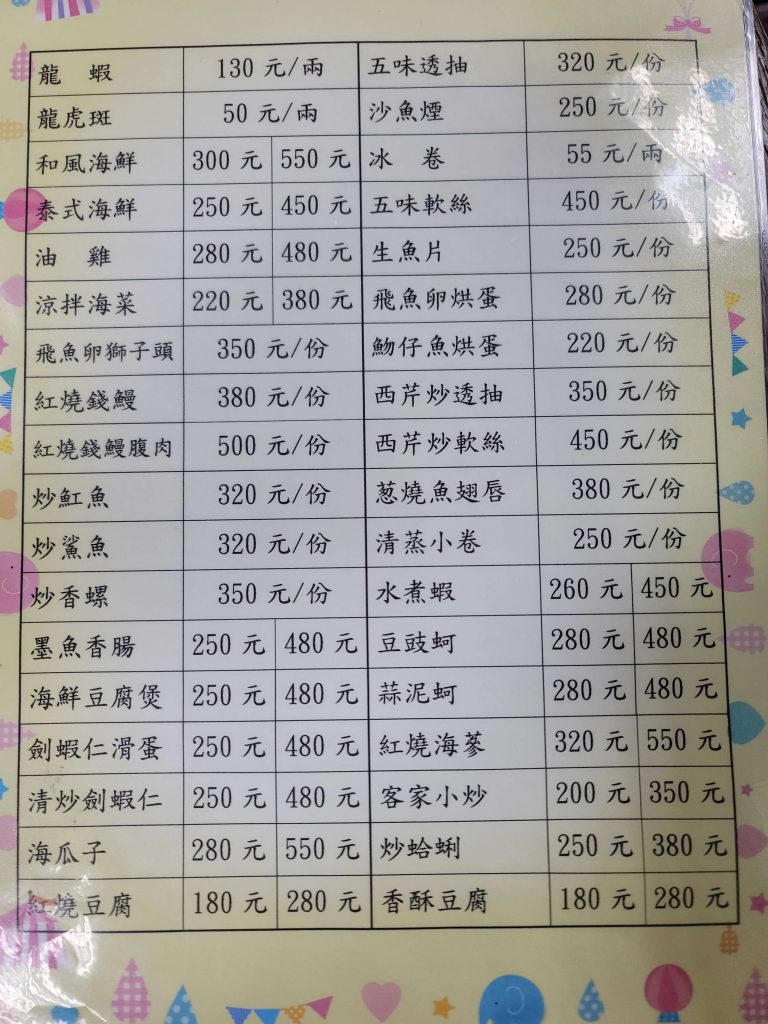 龍 蝦 130 元/兩 五味透抽 320 元/份
龍虎斑 50 元/兩 沙魚煙 250 元/份
和風海鮮 300 元 550 元 冰 卷 55 元/兩
泰式海鮮 250 元 450 元 五味軟絲 450 元/份
油 雞 280 元 480 元 生魚片 250 元/份
涼拌海菜 220 元 380 元 飛魚卵烘蛋 280 元/份
飛魚卵獅子頭 350 元/份 魩仔魚烘蛋 220 元/份
紅燒錢鰻 380 元/份 西芹炒透抽 350 元/份
紅燒錢鰻腹肉 500 元/份 西芹炒軟絲 450 元/份
炒魟魚 320 元/份 葱燒魚翅唇 380 元/份
炒鯊魚 320 元/份 清蒸小卷 250 元/份
炒香螺 350 元/份 水煮蝦 260 元 450 元
墨魚香腸 250 元 480 元 豆豉蚵 280 元 480 元
海鮮豆腐煲 250 元 480 元 蒜泥蚵 280 元 480 元
劍蝦仁滑蛋 250 元 480 元 紅燒海蔘 320 元 550 元
清炒劍蝦仁 250 元 480 元 客家小炒 200 元 350 元
海瓜子 280 元 550 元 炒蛤蜊 250 元 380 元
紅燒豆腐 180 元 280 元 香酥豆腐 180 元 280 元